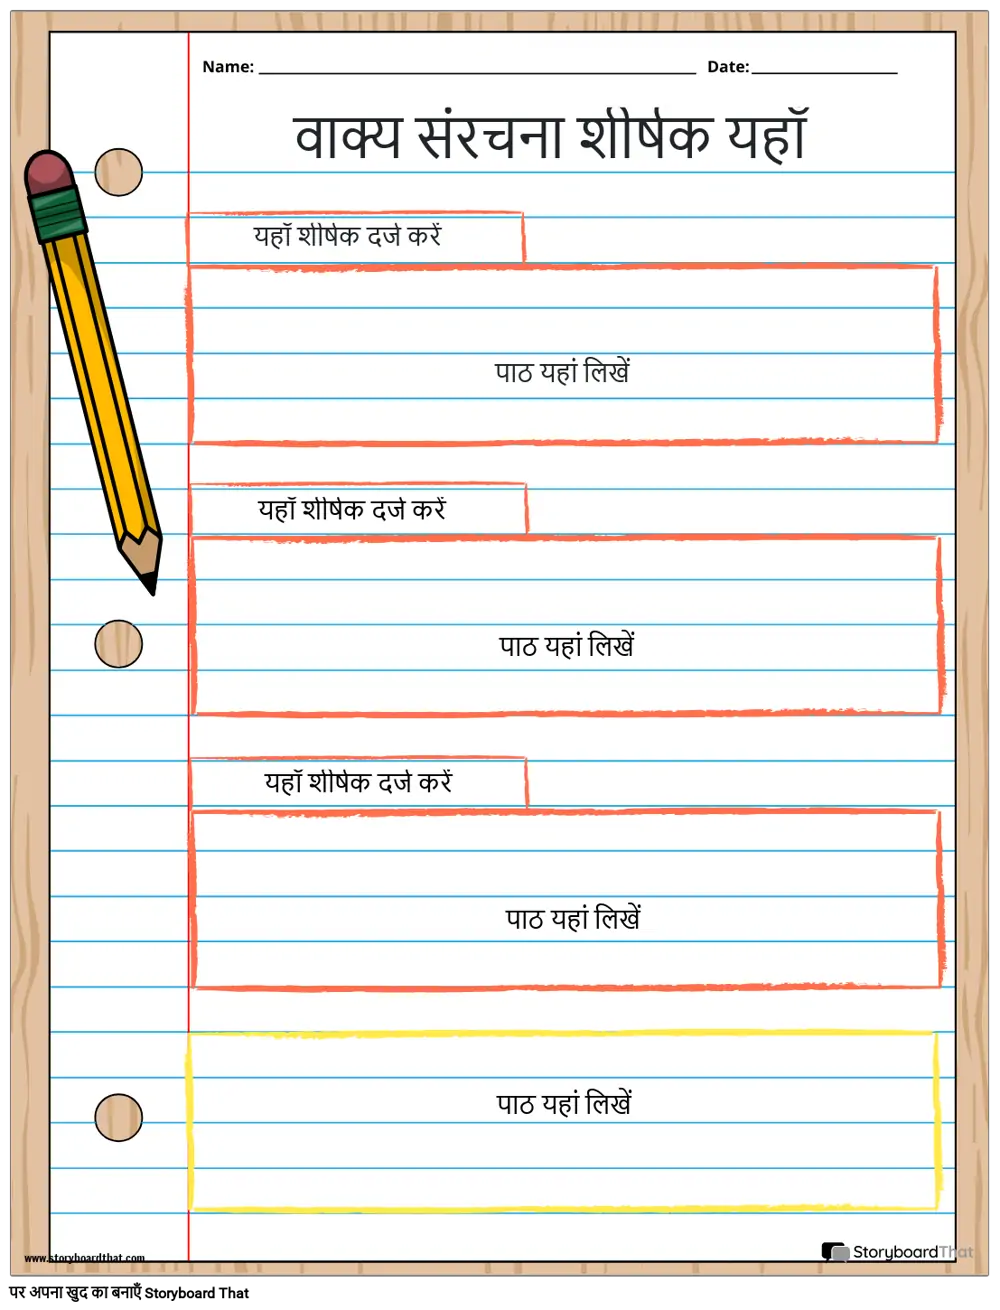 Name: Date:
वाक्य संरचना शीर्षक यहाँ
यहाँ शीर्षक दर्ज करें
पाठ यहां लिखें
यहाँ शीर्षक दर्ज करें
पाठ यहां लिखें
यहाँ शीर्षक दर्ज करें
पाठ यहां लिखें
पाठ यहां लिखें
www.storyboardthat.com StoryboardThat
पर अपना खुद का बनाएँ Storyboard That